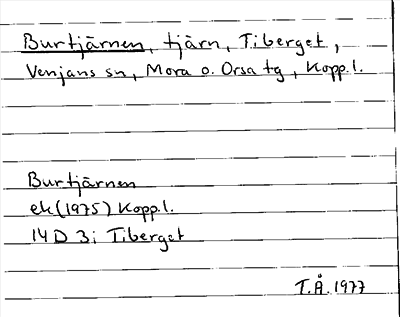 Burtjärnen, tjärn, Tiberget,
Venjans sn, Mora o. Orsa tg, Kopp.l.
Burtjärnen
ek (1975) Kopp.l.
14 D 3i Tiberget
T.Å. 1977